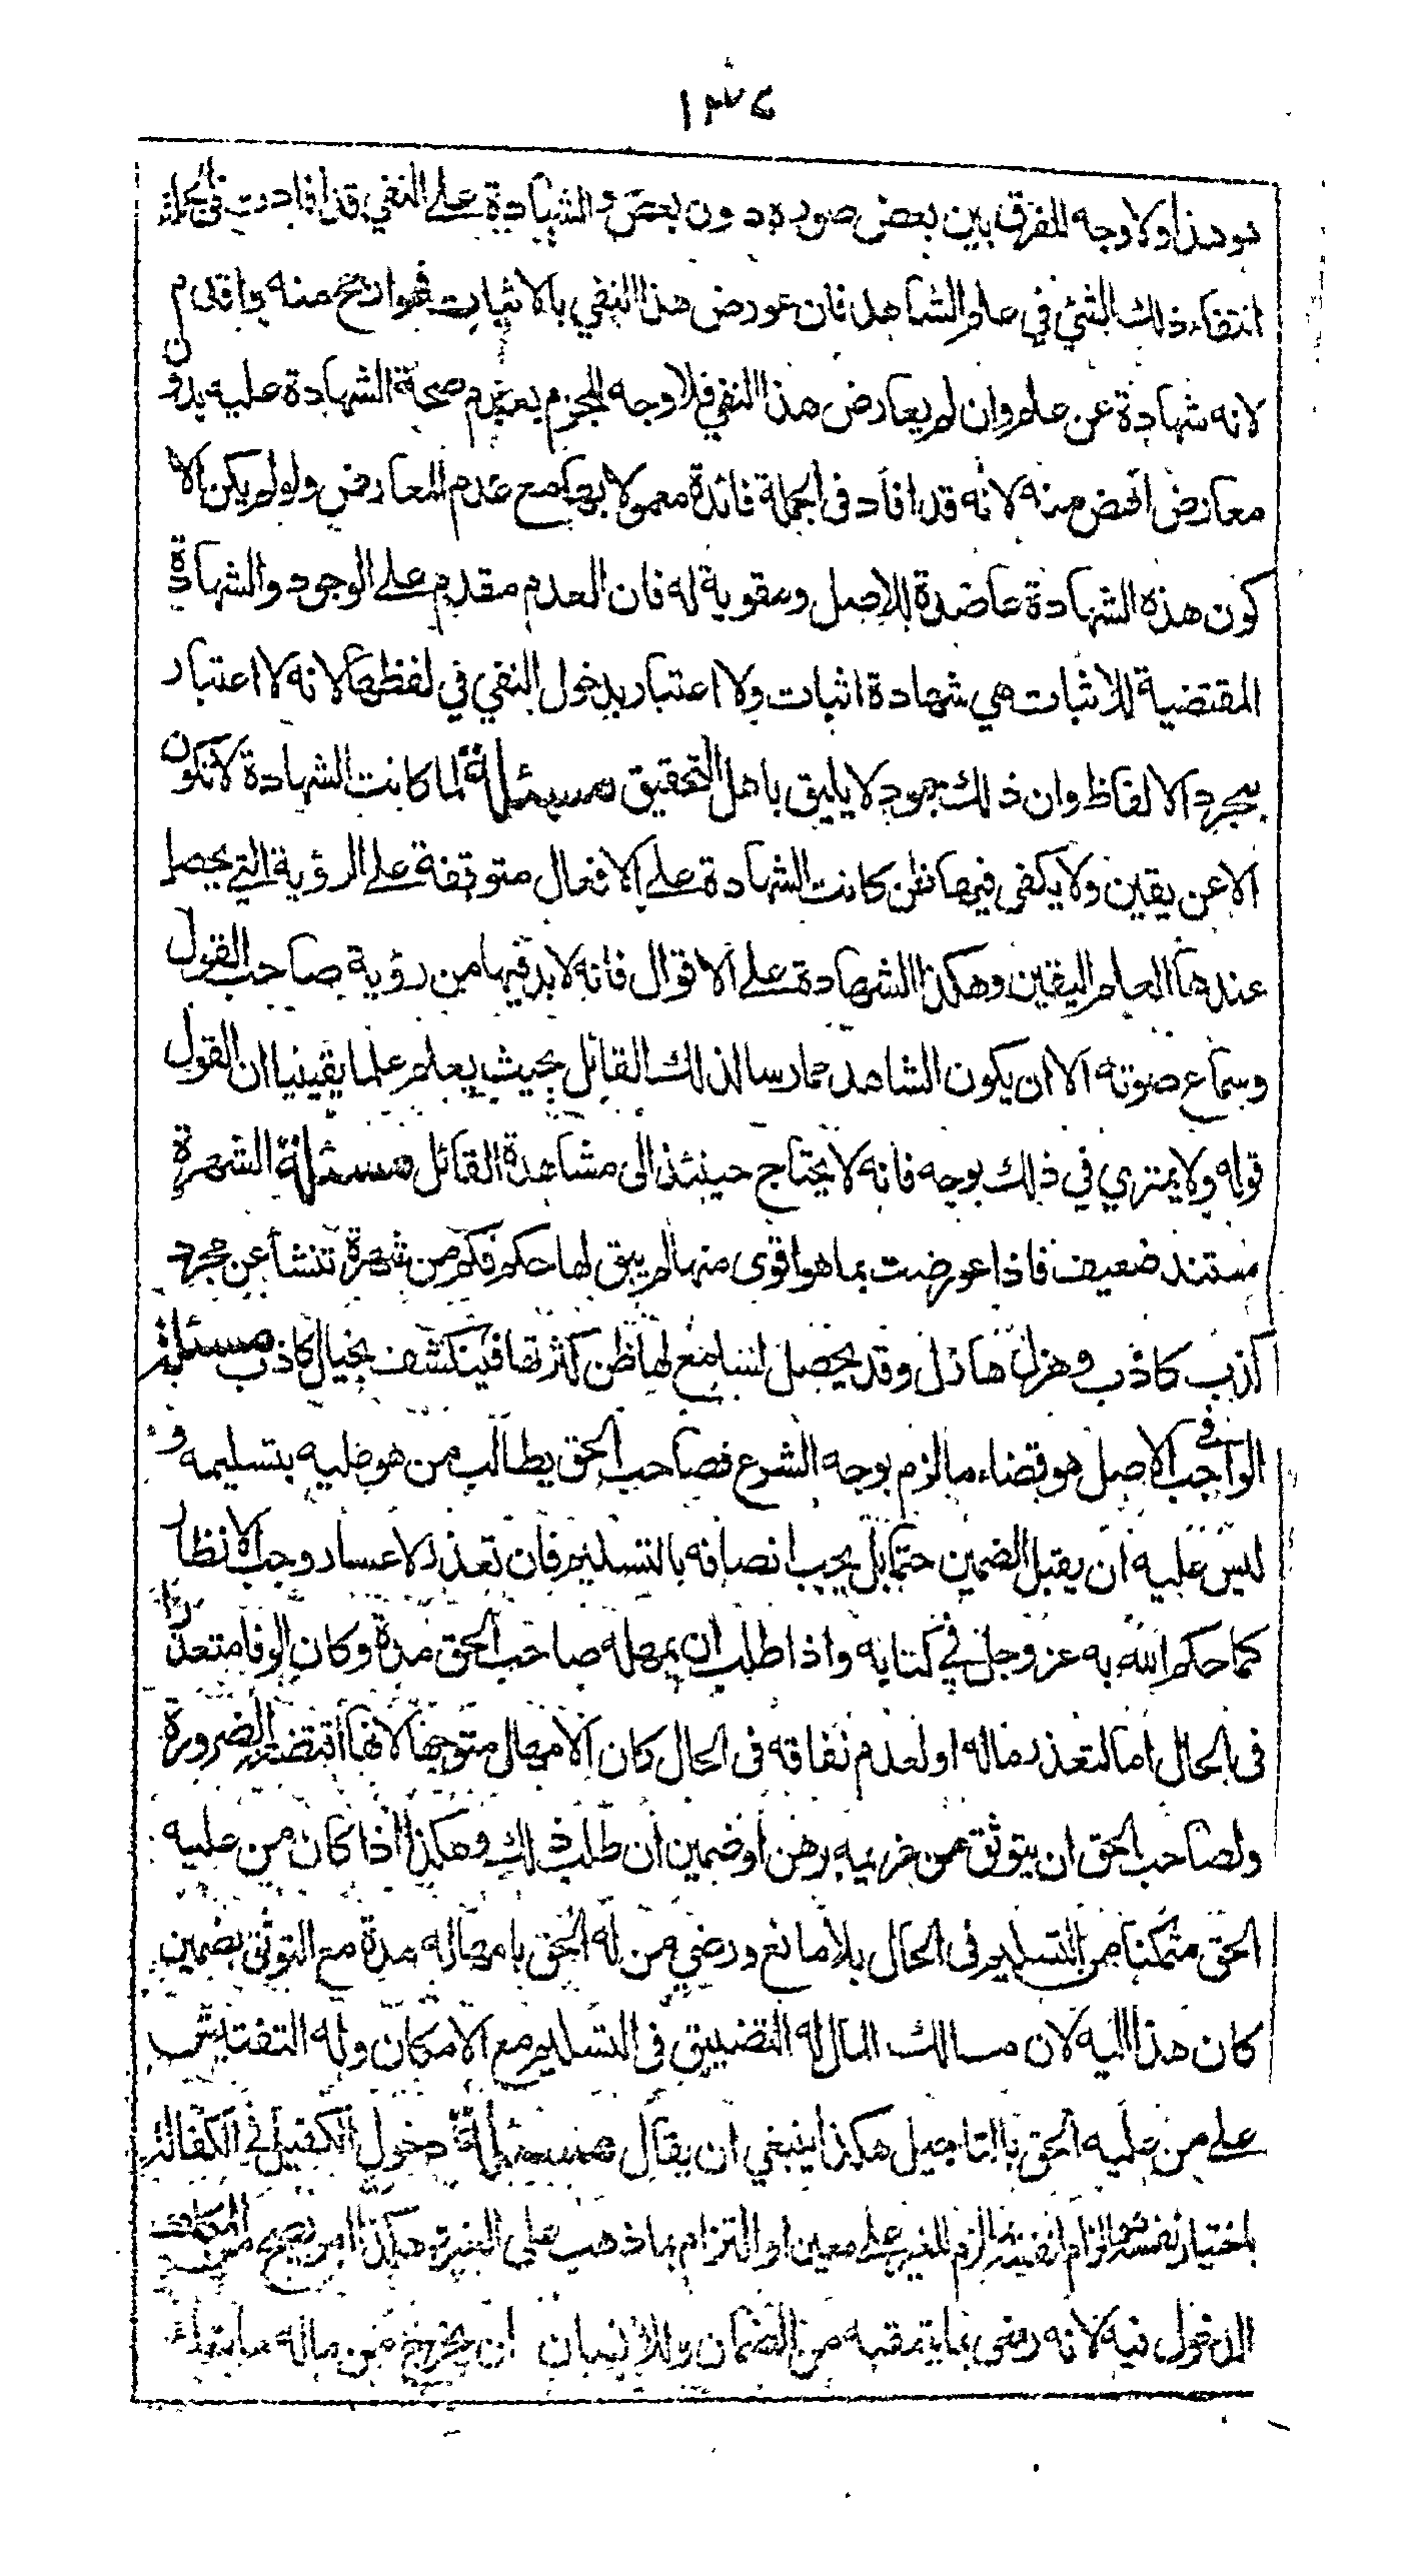 ١٣٤
هو هذا ولا وجه للفرق بين بعض صوره دون بعض والشهادة على النفي قد افادت في الجملة
انتفاء ذلك الشيء في علم الشاهد فان عورض هذا النفي بالاثبات فهو ارجح منه واقدم
لانه شهادة عن علم وان لم يعارض هذا النفي فلا وجه للجزم بعدم صحة الشهادة عليه بدون
معارض انهض منه لانه قد افاد في الجملة فائدة معمولا بها مع عدم المعارض ولو لم يكن الا
كون هذه الشهادة عاضدة للاصل ومقوية له فان العدم مقدم على الوجود والشهادة
المقتضية للاثبات هي شهادة اثبات ولا اعتبار بدخول النفي في لفظها لانه لا اعتبار
بمجرد الالفاظ وان ذلك جمود لا يليق باهل التحقيق مسئلة لما كانت الشهادة لا تكون
الا عن يقين ولا يكفي فيها ظن كانت الشهادة على الافعال متوقفة على الرؤية التي يحصل
عندها العلم اليقين وهكذا الشهادة على الاقوال فانه لا بد فيها من رؤية صاحب القول
وسماع صوته الا ان يكون الشاهد ممارسا لذلك القائل بحيث يعلم علما يقينيا ان القول
قوله ولا يمتري في ذلك بوجه فانه لا يحتاج حينئذ الى مشاهدة القائل مسئلة الشهرة
مستند ضعيف فاذا عورضت بما هو اقوى منها لم يبق لها حكم فكم من شهرة تنشأ عن مجرد
كذب كاذب وهزل هازل وقد يحصل لسامع لها ظن لكثرتها فينكشف بخيال كاذب مسئلة
الواجب في الاصل هو قضاء ما لزم بوجه الشرع فصاحب الحق يطالب من هو عليه بتسليمه و
ليس عليه ان يقبل الضمين حتما بل يجب انصافه بالتسليم فان تعذر لاعسار وجب الانظار
كما حكم الله به عز وجل في كتابه واذا طلب ان يمهله صاحب الحق مدة وكان الوفا متعذرا
في الحال اما لتعذر ماله او لعدم نفاقه في الحال كان الامهال متوجها لانها اقتضته الضرورة
ولصاحب الحق ان يتوثق من غريمه برهن او ضمين ان طلب ذلك وهكذا اذا كان من عليه
الحق متمكنا من التسليم في الحال بلا مانع ورضي من له الحق بامهاله مدة مع التوثق بضمين
كان هذا اليه لان مالك المال له التضييق في التسليم مع الامكان وله التفتيش
على من عليه الحق بالتاجيل هكذا ينبغي ان يقال مسئلة دخول الكفيل في الكفالة
باختيار نفسه الزام لنفسه لزم للغير على معين او التزام بما ذهب على الغير وهكذا امر يصح من
الدخول فيه لانه رضي بما يتعقبه من الضمان وللانسان ان يخرج من ماله ما يشاء